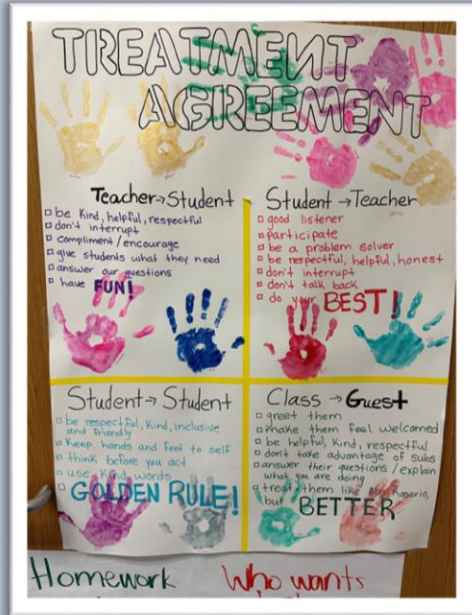 TREATMENT
AGREEMENT
Teacher→Student
□ be kind, helpful, respectful
□ don't interrupt
□ compliment/encourage
□ give students what they need
□ answer our questions
□ have FUN!
Student→Teacher
□ good listener
□ participate
□ be a problem solver
□ be respectful, helpful, honest
□ don't interrupt
□ don't talk back
□ do your BEST!
Student→Student
□ be respectful, kind, inclusive
and friendly
□ keep hands and feet to self
□ think before you act
□ use kind words
□ GOLDEN RULE!
Class→Guest
□ greet them
□ make them feel welcomed
□ be helpful, kind, respectful
□ don't take advantage of subs
□ answer their questions / explain
what you are doing
□ treat them like Rosario,
but BETTER
Homework
Who wants